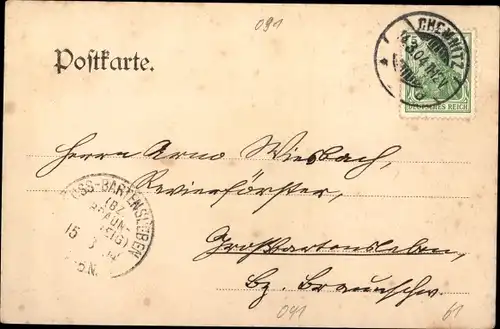 091
Postkarte.
CHEMNITZ
5
DEUTSCHES REICH
Herrn Arno Wiesbach,
Revierförster,
Großbartensleben,
bz. Braunschw.
OSS-BARTENSLEBEN
(BZ.
BRAUN-
EIG)
15 3 04
5N.
091
61